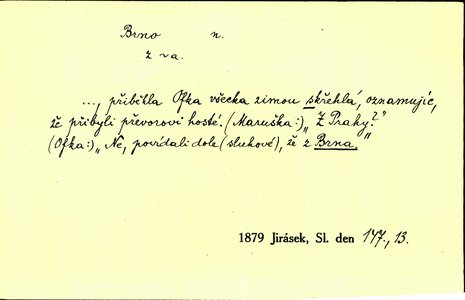 Brno n.
z ~a.
..., přiběhla Ofka všecka zimou skřehlá, oznamujíc,
že přibyli převorovi hosté. (Maruška:) „Z Prahy?"
(Ofka:) „Ne, povídali dole (sluhové), že z Brna."
1879 Jirásek, Sl. den 147., 13.